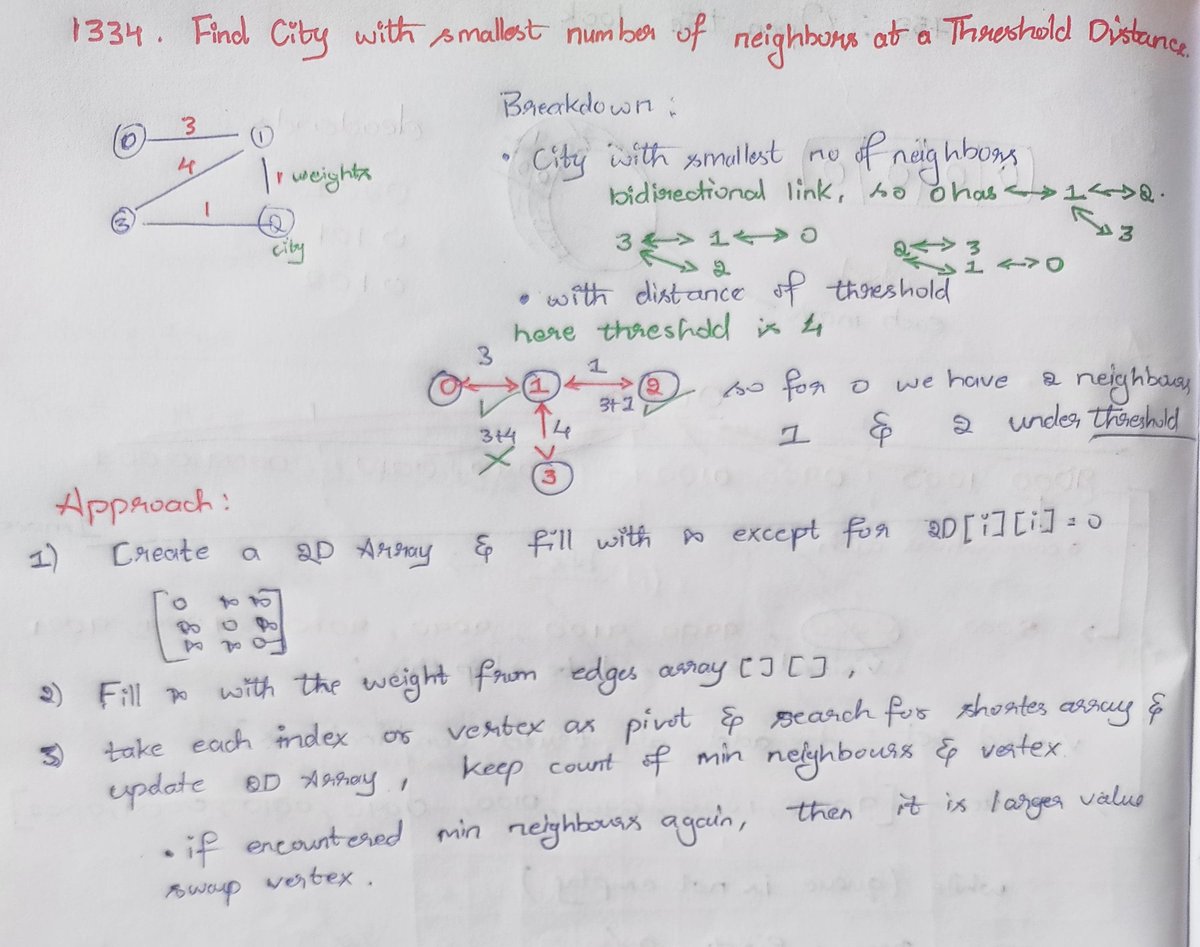 1334. Find City with smallest number of neighbors at a Threshold Distance.
0 3 1
4
1 weights
3 1 2
city
Breakdown :
• City with smallest no of neighbors
bidirectional link, so 0 has ⟷ 1 ⟷ 2.
3
3 ⟷ 1 ⟷ 0
2
2 ⟷ 3
1 ⟷ 0
• with distance of threshold
here threshold is 4
3 1
0 ⟷ 1 ⟷ 2 so for 0 we have 2 neighbours
✓ 3+1 ✓
3+4 4 1 & 2 under threshold
✗
3
Approach :
1) Create a 2D Array & fill with ∞ except for 2D[i][i] = 0
0 ∞ ∞
∞ 0 ∞
∞ ∞ 0
2) Fill ∞ with the weight from edges array [] [] ,
3) take each index or vertex as pivot & search for shortes array &
update 2D Array , keep count of min neighbours & vertex
• if encountered min neighbours again, then it is larger value
swap vertex .